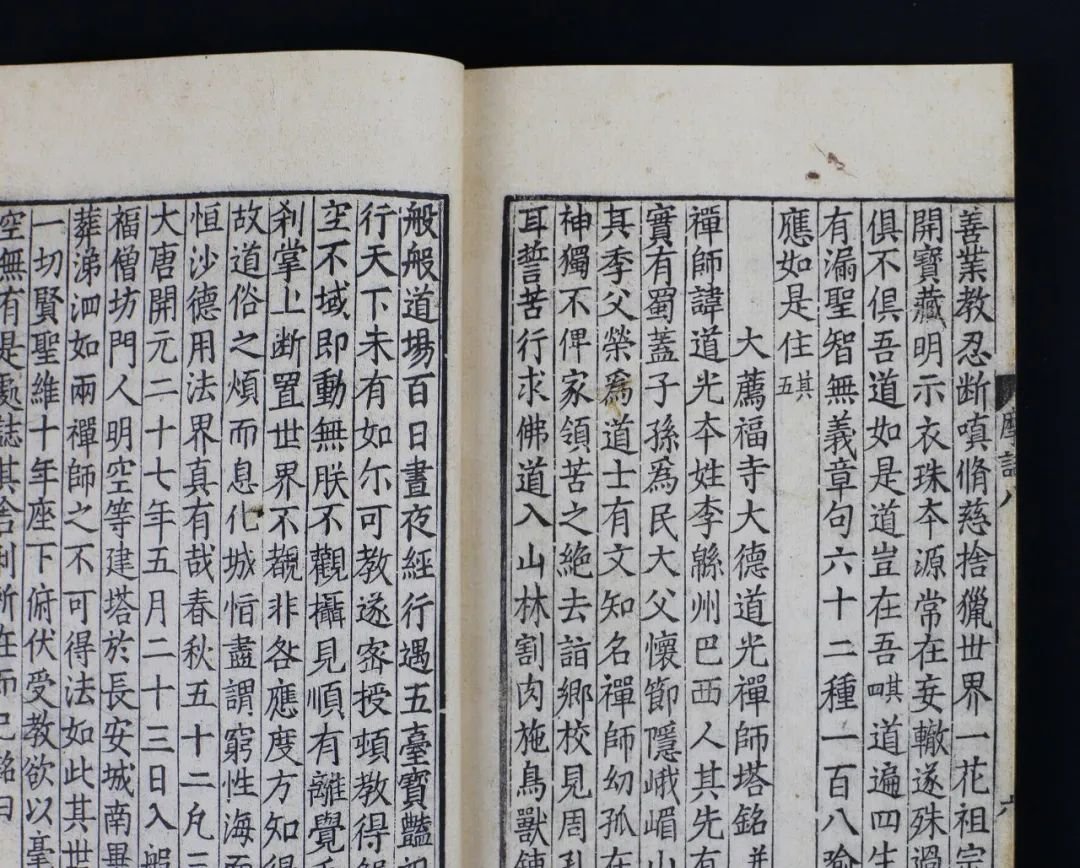 善業教忍斷嗔脩慈捨獵世界一花祖宗
開寶藏明示衣珠夲源常在妄轍遂殊過
俱不俱吾道如是道豈在吾 其四 道遍四生
有漏聖智無義章句六十二種一百八喻
應如是住 其五
大薦福寺大德道光禪師塔銘
禪師諱道光夲姓李緜州巴西人其先有
實有蜀蓋子孫爲民大父懷節隱峨嵋山
其季父榮爲道士有文知名禪師幼孤在
神獨不俾家領苦之絶去詣鄉校見周孔
耳誓苦行求佛道入山林割肉施鳥獸鍊
般般道場百日晝夜經行遇五臺寶豔
行天下未有如尔可教遂宻授頓教得
空不域即動無朕不觀攝見順有離覺
刹掌上斷置世界不覩非咎應度方知得
故道俗之煩而息化城指盡謂窮性海而
恒沙德用法界真有哉春秋五十二凢三
大唐開元二十七年五月二十三日入般
福僧坊門人明空等建塔於長安城南畢
葬涕泗如雨禪師之不可得法如此其世
一切賢聖維十年座下俯伏受教欲以毫
空無有是處誌其舍利所在而已銘曰